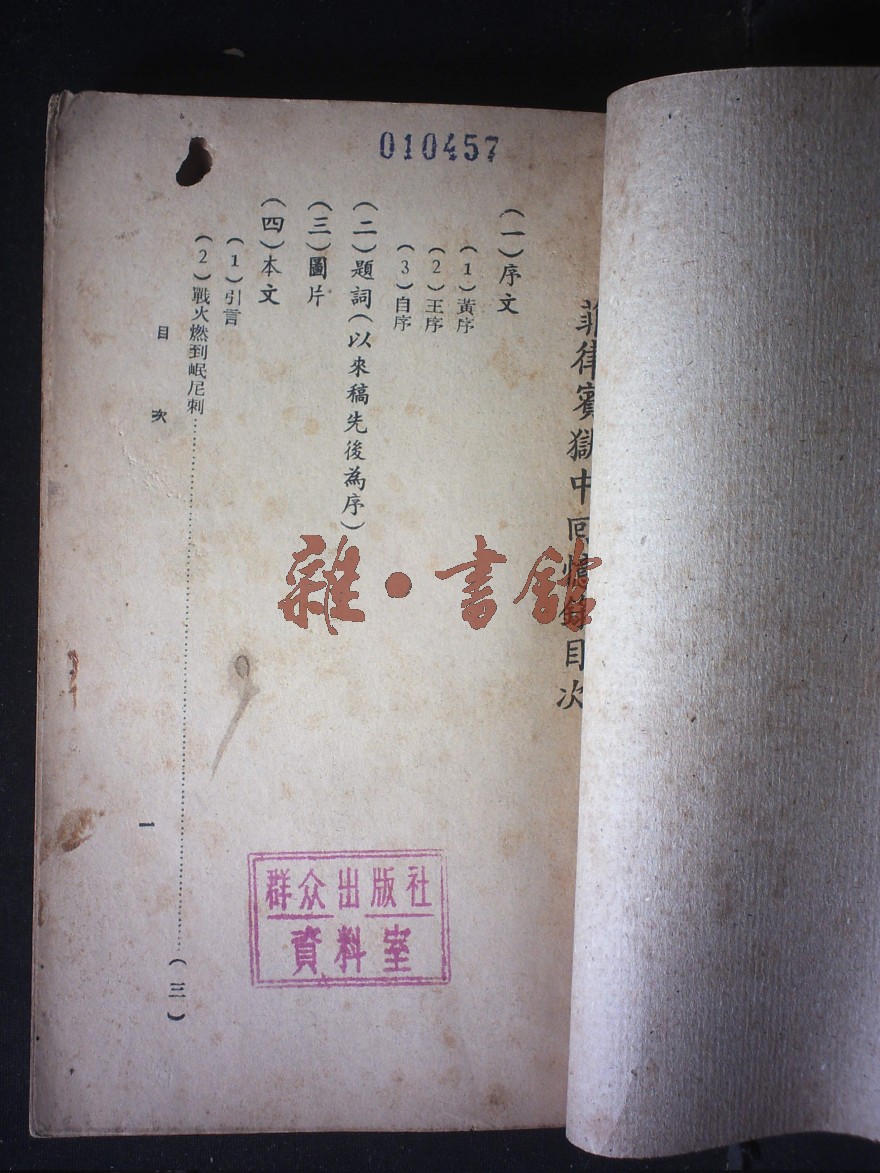 010457
菲律賓獄中回憶錄目次
(一)序文
(1)黃序
(2)王序
(3)自序
(二)題詞(以來稿先後為序)
(三)圖片
(四)本文
(1)引言
(2)戰火燃到岷尼剌……(三)
目次
一
雜·書館
群众出版社
資料室